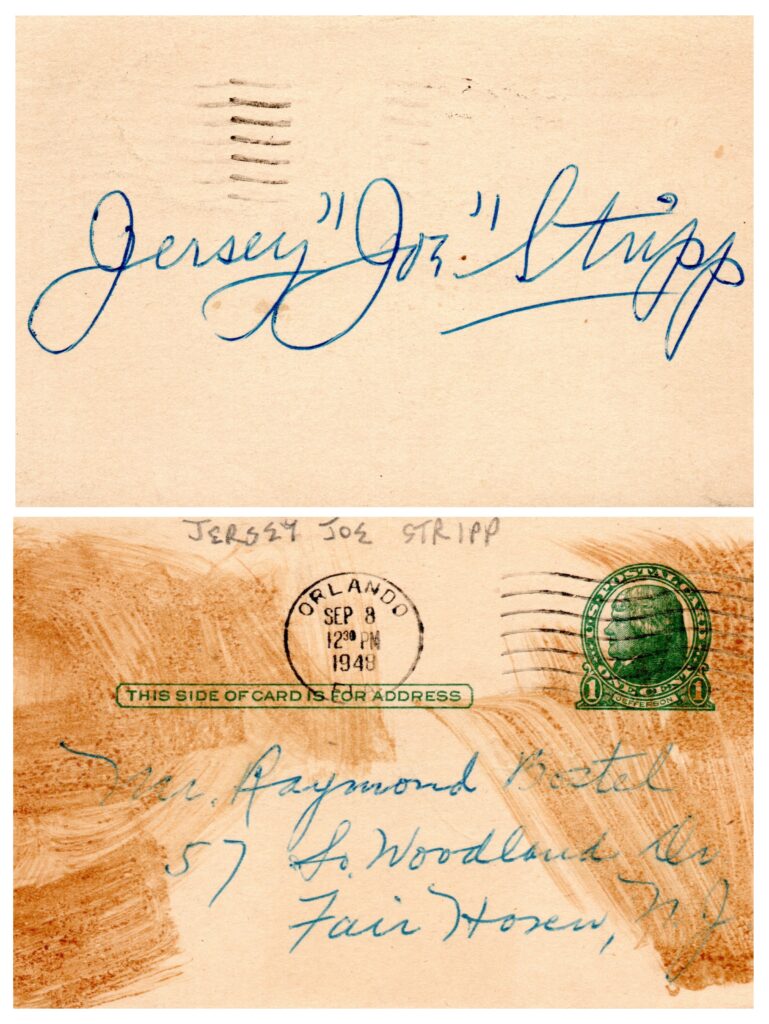 Jersey "Joe" Stripp
JERSEY JOE STRIPP
ORLANDO
SEP 8
12 30 PM
1948
FLA.
U.S. POSTAL CARD
ONE CENT
1 JEFFERSON 1
THIS SIDE OF CARD IS FOR ADDRESS
Mr. Raymond Bostel
57 So. Woodland Dr
Fair Haven, N.J